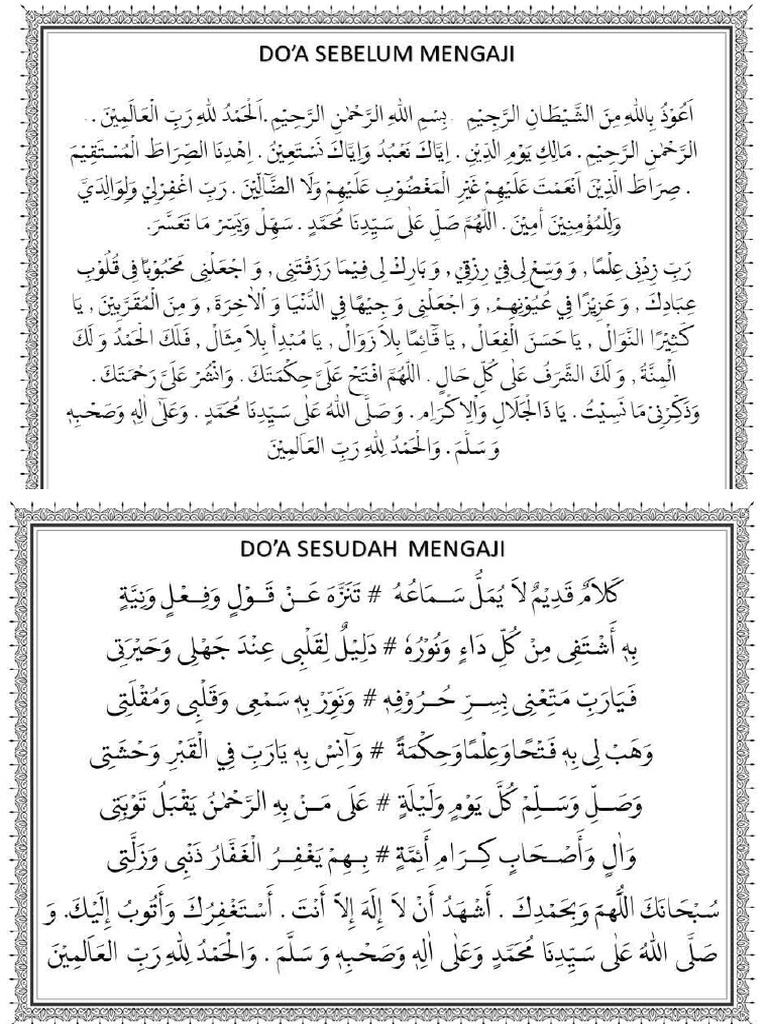 DO'A SEBELUM MENGAJI
اَعُوْذُ بِاللهِ مِنَ الشَّيْطَانِ الرَّجِيْمِ . بِسْمِ اللهِ الرَّحْمٰنِ الرَّحِيْمِ.اَلْحَمْدُ لِلّٰهِ رَبِّ الْعَالَمِيْنَ .
الرَّحْمٰنِ الرَّحِيْمِ . مَالِكِ يَوْمِ الدِّيْنِ . اِيَّاكَ نَعْبُدُ وَاِيَّاكَ نَسْتَعِيْنُ . اِهْدِنَا الصِّرَاطَ الْمُسْتَقِيْمَ
. صِرَاطَ الَّذِيْنَ اَنْعَمْتَ عَلَيْهِمْ غَيْرِ الْمَغْضُوْبِ عَلَيْهِمْ وَلَا الضَّآلِّيْنَ . رَبِّ اغْفِرْلِيْ وَلِوَالِدَيَّ
وَلِلْمُؤْمِنِيْنَ اٰمِيْنَ . اَللّٰهُمَّ صَلِّ عَلٰى سَيِّدِنَا مُحَمَّدٍ . سَهِّلْ وَيَسِّرْ مَا تَعَسَّرَ.
رَبِّ زِدْنِى عِلْمًا , وَ وَسِّعْ لِى فِيْ رِزْقِيْ , وَ بَارِكْ لِى فِيْمَا رَزَقْتَنِى , وَ اجْعَلْنِى مَحْبُوْبًا فِى قُلُوْبِ
عِبَادِكَ , وَ عَزِيْزًا فِي عُيُوْنِهِمْ, وَ اجْعَلْنِى وَجِيْهًا فِي الدُّنْيَا وَ الْاٰخِرَةِ , وَ مِنَ الْمُقَرَّبِيْنَ , يَا
كَثِيْرَا النَّوَالْ , يَا حَسَنَ الْفِعَالْ , يَا قَآئِمًا بِلَا زَوَالْ , يَا مُبْدِأً بِلَا مِثَالْ , فَلَكَ الْحَمْدُ وَ لَكَ
الْمِنَّةُ , وَ لَكَ الشَّرَفُ عَلٰى كُلِّ حَالٍ . اَللّٰهُمَّ افْتَحْ عَلَيَّ حِكْمَتَكَ . وَانْشُرْ عَلَيَّ رَحْمَتَكَ .
وَذَكِّرْنِىْ مَا نَسِيْتُ . يَا ذَالْجَلَالِ وَالْاِكْرَامِ . وَ صَلَّى اللهُ عَلٰى سَيِّدِنَا مُحَمَّدٍ . وَعَلٰى اٰلِهٖ وَصَحْبِهٖ
وَ سَلَّمَ . وَالْحَمْدُ لِلّٰهِ رَبِّ الْعَالَمِيْنَ
DO'A SESUDAH MENGAJI
كَلَامٌ قَدِيْمٌ لَا يُمَلُّ سَمَاعُهُ # تَنَزَّهَ عَنْ قَوْلٍ وَفِعْلٍ وَنِيَّةٍ
بِهٖ أَشْتَفِى مِنْ كُلِّ دَاءٍ وَنُوْرُهٗ # دَلِيْلٌ لِقَلْبِى عِنْدَ جَهْلِى وَحَيْرَتِى
فَيَارَبِّ مَتِّعْنِى بِسِرِّ حُرُوْفِهٖ # وَنَوِّرْ بِهٖ سَمْعِى وَقَلْبِى وَمُقْلَتِى
وَهَبْ لِى بِهٖ فَتْحًا وَعِلْمًا وَحِكْمَةً # وَآنِسْ بِهٖ يَارَبِّ فِي الْقَبْرِ وَحْشَتِى
وَصَلِّ وَسَلِّمْ كُلَّ يَوْمٍ وَلَيْلَةٍ # عَلَى مَنْ بِهِ الرَّحْمٰنُ يَقْبَلُ تَوْبَتِى
وَالٍ وَأَصْحَابٍ كِرَامٍ أَئِمَّةٍ # بِهِمْ يَغْفِرُ الْغَفَّارُ ذَنْبِى وَزَلَّتِى
سُبْحَانَكَ اللّٰهُمَّ وَبِحَمْدِكَ . أَشْهَدُ أَنْ لَا إِلَهَ إِلَّا أَنْتَ . أَسْتَغْفِرُكَ وَأَتُوبُ إِلَيْكَ. وَ
صَلَّى اللهُ عَلٰى سَيِّدِنَا مُحَمَّدٍ وَعَلٰى اٰلِهٖ وَصَحْبِهٖ وَ سَلَّمَ . وَالْحَمْدُ لِلّٰهِ رَبِّ الْعَالَمِيْنَ